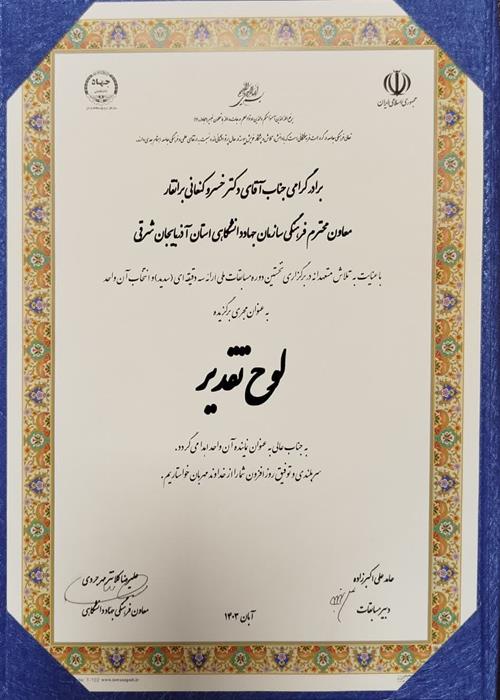 جمهوری اسلامی ایران
جهاد
برادر گرامی جناب آقای دکتر خسرو کنعانی برانقار
معاون محترم فرهنگی سازمان جهاددانشگاهی استان آذربایجان شرقی
با عنایت به تلاش متعهدانه در برگزاری نخستین دوره مسابقات ملی ارائه سه دقیقه‌ای (سه‌دید) و انتخاب آن واحد
به عنوان مجری برگزیده
لوح تقدیر
به جناب عالی به عنوان نماینده آن واحد اهدا می گردد.
سربلندی و توفیق روزافزون شما را از خداوند مهربان خواستاریم.
حامد علی اکبرزاده
دبیر مسابقات
علیرضا کلانتر مهرجردی
معاون فرهنگی جهاددانشگاهی
آبان ۱۴۰۳